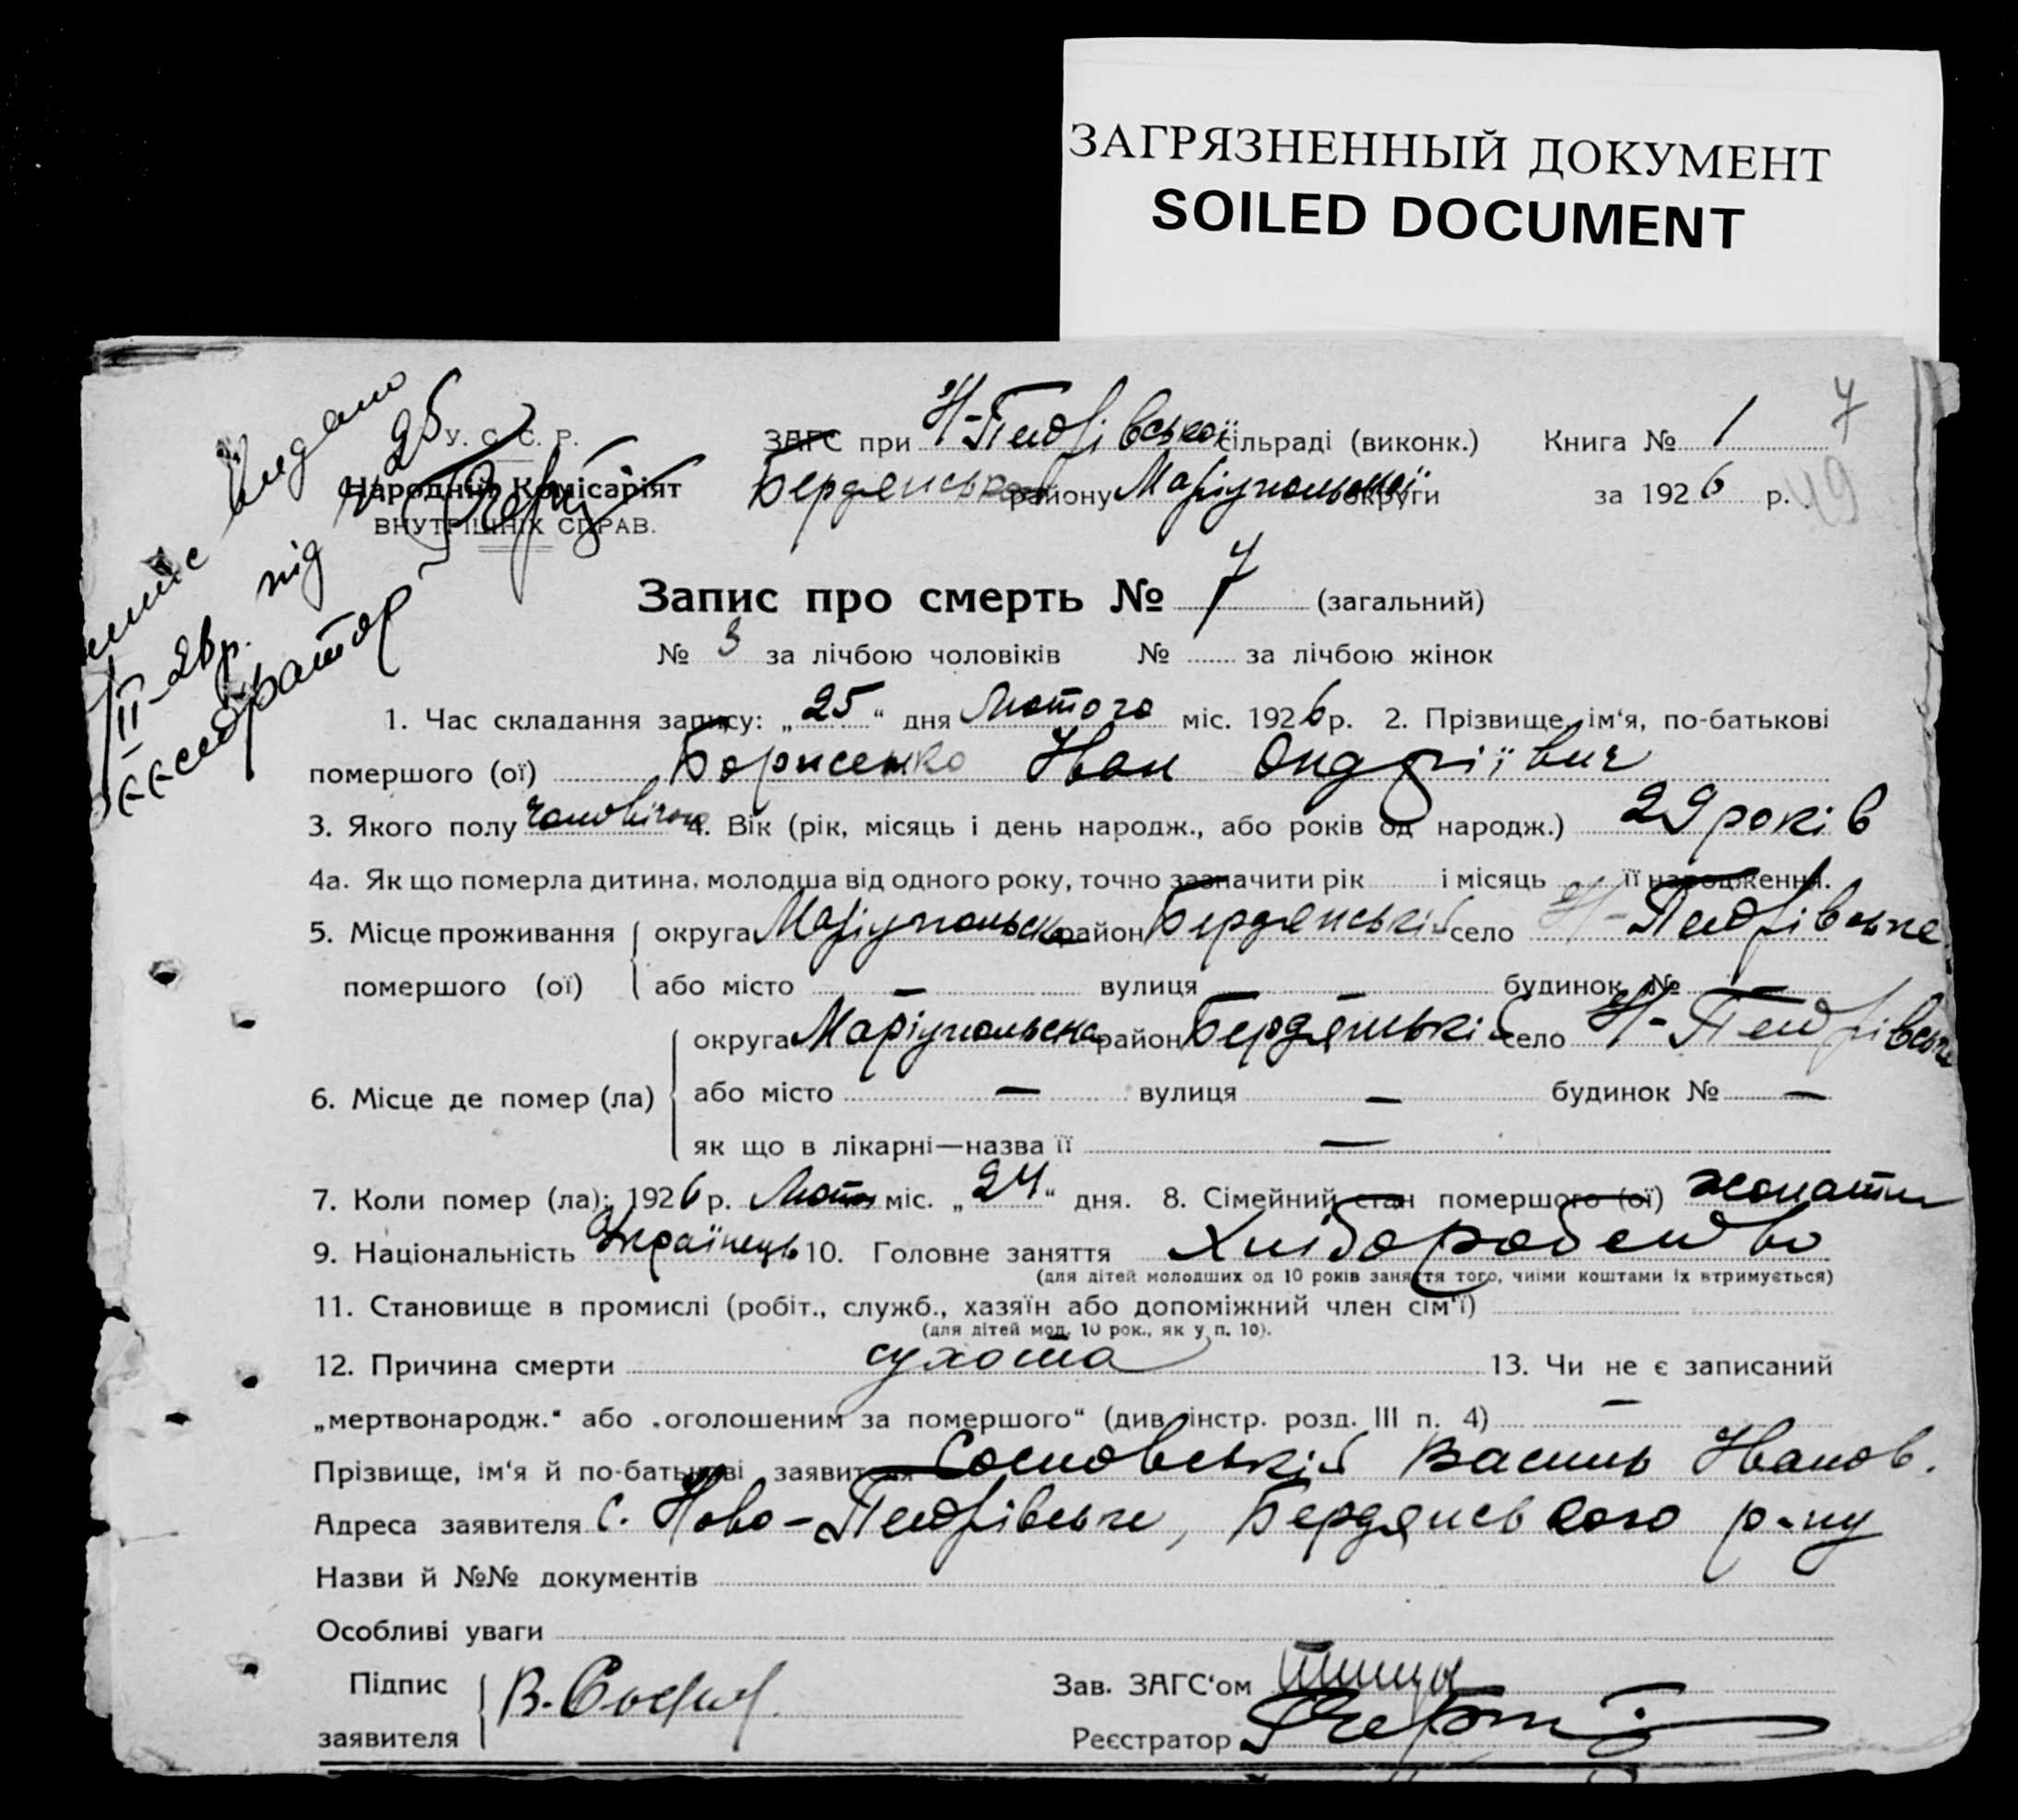 ЗАГРЯЗНЕННЫЙ ДОКУМЕНТ
SOILED DOCUMENT
Видано
25
У. С. С. Р.
Народній Комісаріят
ВНУТРІШНІХ СПРАВ.
під
II 26 р.
ЗАГС при Н-Петрівської сільраді (виконк.) Книга № 1 7
Бердянського району Маріупольської округи за 1926 р. 49
Запис про смерть № 7 (загальний)
№ 3 за лічбою чоловіків № за лічбою жінок
1. Час складання запису: „25“ дня Лютого міс. 1926 р. 2. Прізвище, ім‘я, по-батькові
помершого (ої) Борисенко Іван Ондрїївич
3. Якого полу чоловічого 4. Вік (рік, місяць і день народж., або років од народж.) 29 років
4а. Як що померла дитина, молодша від одного року, точно зазначити рік і місяць її народження.
5. Місце проживання округа Маріупольська район Бердянський село Н-Петрівське
помершого (ої) або місто — вулиця — будинок № —
округа Маріупольська район Бердянський село Н-Петрівське
6. Місце де помер (ла) або місто — вулиця — будинок № —
як що в лікарні—назва її —
7. Коли помер (ла): 1926 р. Лютого міс. „24“ дня. 8. Сімейний стан помершого (ої) жонатий
9. Національність Українець 10. Головне заняття Хліборобство
(для дітей молодших од 10 років заняття того, чиїми коштами їх втримується)
11. Становище в промислі (робіт., служб., хазяїн або допоміжний член сім‘ї)
(для дітей мол. 10 рок., як у п. 10).
12. Причина смерти сухота 13. Чи не є записаний
„мертвонародж.“ або „оголошеним за помершого“ (див. інстр. розд. III п. 4) —
Прізвище, ім‘я й по-батькові заявителя Сосновський Василь Іванов.
Адреса заявителя С. Ново-Петрівське, Бердянського р-ну
Назви й №№ документів
Особливі уваги
Підпис Зав. ЗАГС‘ом
заявителя Реєстратор